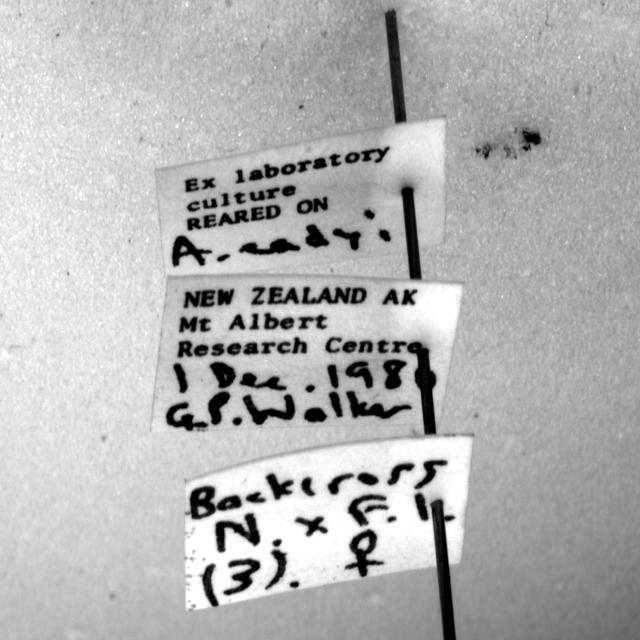 Ex laboratory
culture
REARED ON
A. eadyi
NEW ZEALAND AK
Mt Albert
Research Centre
1 Dec. 198
G.P. Walker
Backcross
N. x F.1
(3). ♀